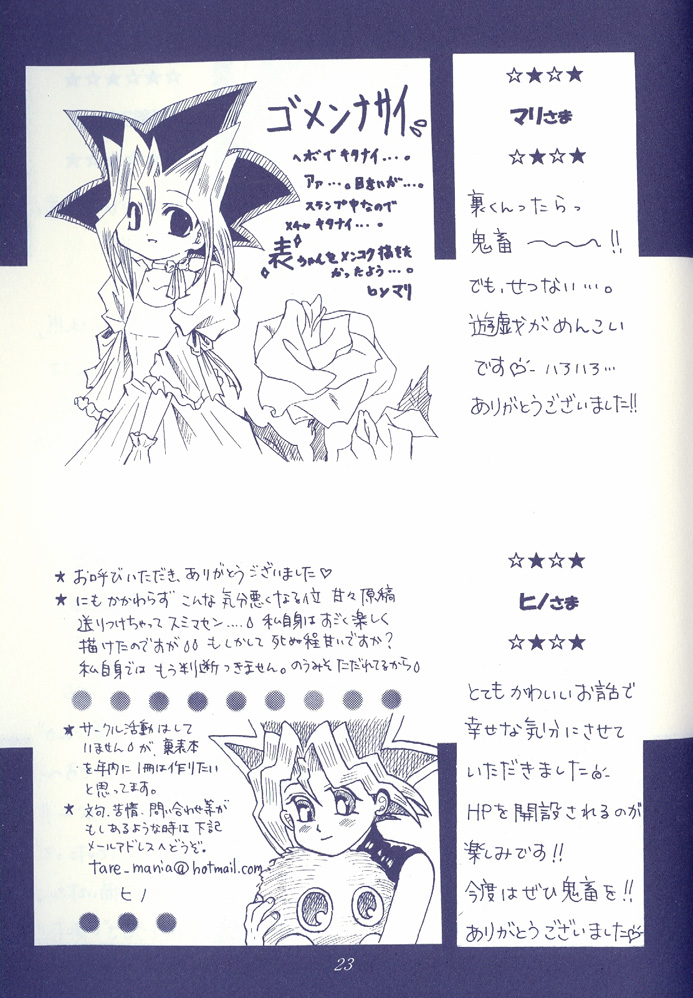 ゴメンナサイ
ヘボでキタナイ…。
アァ…。目まいが…。
スランプ中なので
メチャキタナイ…。
表ちゃんをメンコク描きた
かったよう…。
by マリ
☆★☆★
マリさま
☆★☆★
裏くんったらっ
鬼畜〜〜!!
でも、せつない…。
遊戯がめんこい
です♡ いろいろ…
ありがとうございました!!
★ お呼びいただき、ありがとうございました♡
★ にもかかわらず こんな気分悪くなる位 甘々原稿
送りつけちゃってスミマセン…。私自身はすごく楽しく
描けたのですが もしかして死ぬ程甘いですか？
私自身では もう判断つきません。のうみそただれてるから
★ サークル活動はして
いませんが、裏表本
を年内に1冊は作りたい
と思ってます。
★ 文句、苦情、問い合わせ等が
もしあるような時は下記
メールアドレスへどうぞ。
tare_mania@hotmail.com
ヒノ
☆★☆★
ヒノさま
☆★☆★
とてもかわいいお話で
幸せな気分にさせて
いただきました
HPを開設されるのが
楽しみです!!
今度はぜひ鬼畜を!!
ありがとうございました♡
23